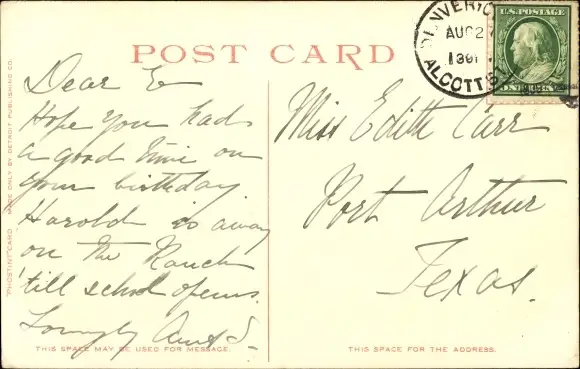 POST CARD
DENVER
AUG 2
ALCOTT S
U.S. POSTAGE
ONE CENT
Dear E
Hope you had
a good time on
your birthday
Harold is away
on the Ranch
'till school opens.
Lovingly Aunt S-
Miss Edith Carr
Port Arthur
Texas.
"PHOSTINT" CARD MADE ONLY BY DETROIT PUBLISHING CO.
THIS SPACE MAY BE USED FOR MESSAGE.
THIS SPACE FOR THE ADDRESS.